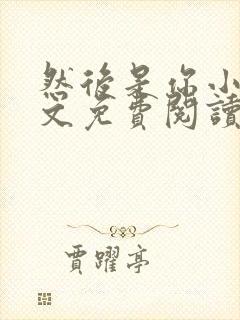 然後是你小
文免費閱讀
賈躍亭